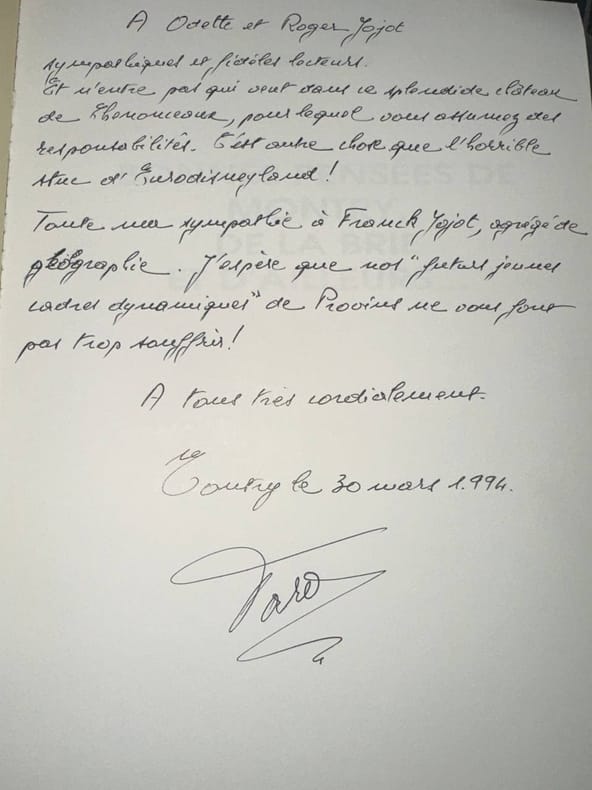 A Odette et Roger Jojot
sympathiques et fidèles lecteurs.
Et n'entre pas qui veut dans ce splendide château
de Chenonceaux, pour lequel vous assumez des
responsabilités. C'est autre chose que l'horrible
stuc d'Eurodisneyland!
Toute ma sympathie à Franck Jojot, agrégé de
géographie. J'espère que nos "futurs jeunes
cadres dynamiques" de Provins ne vous font
pas trop souffrir!
A tous très cordialement.
le 30 mars 1.994.